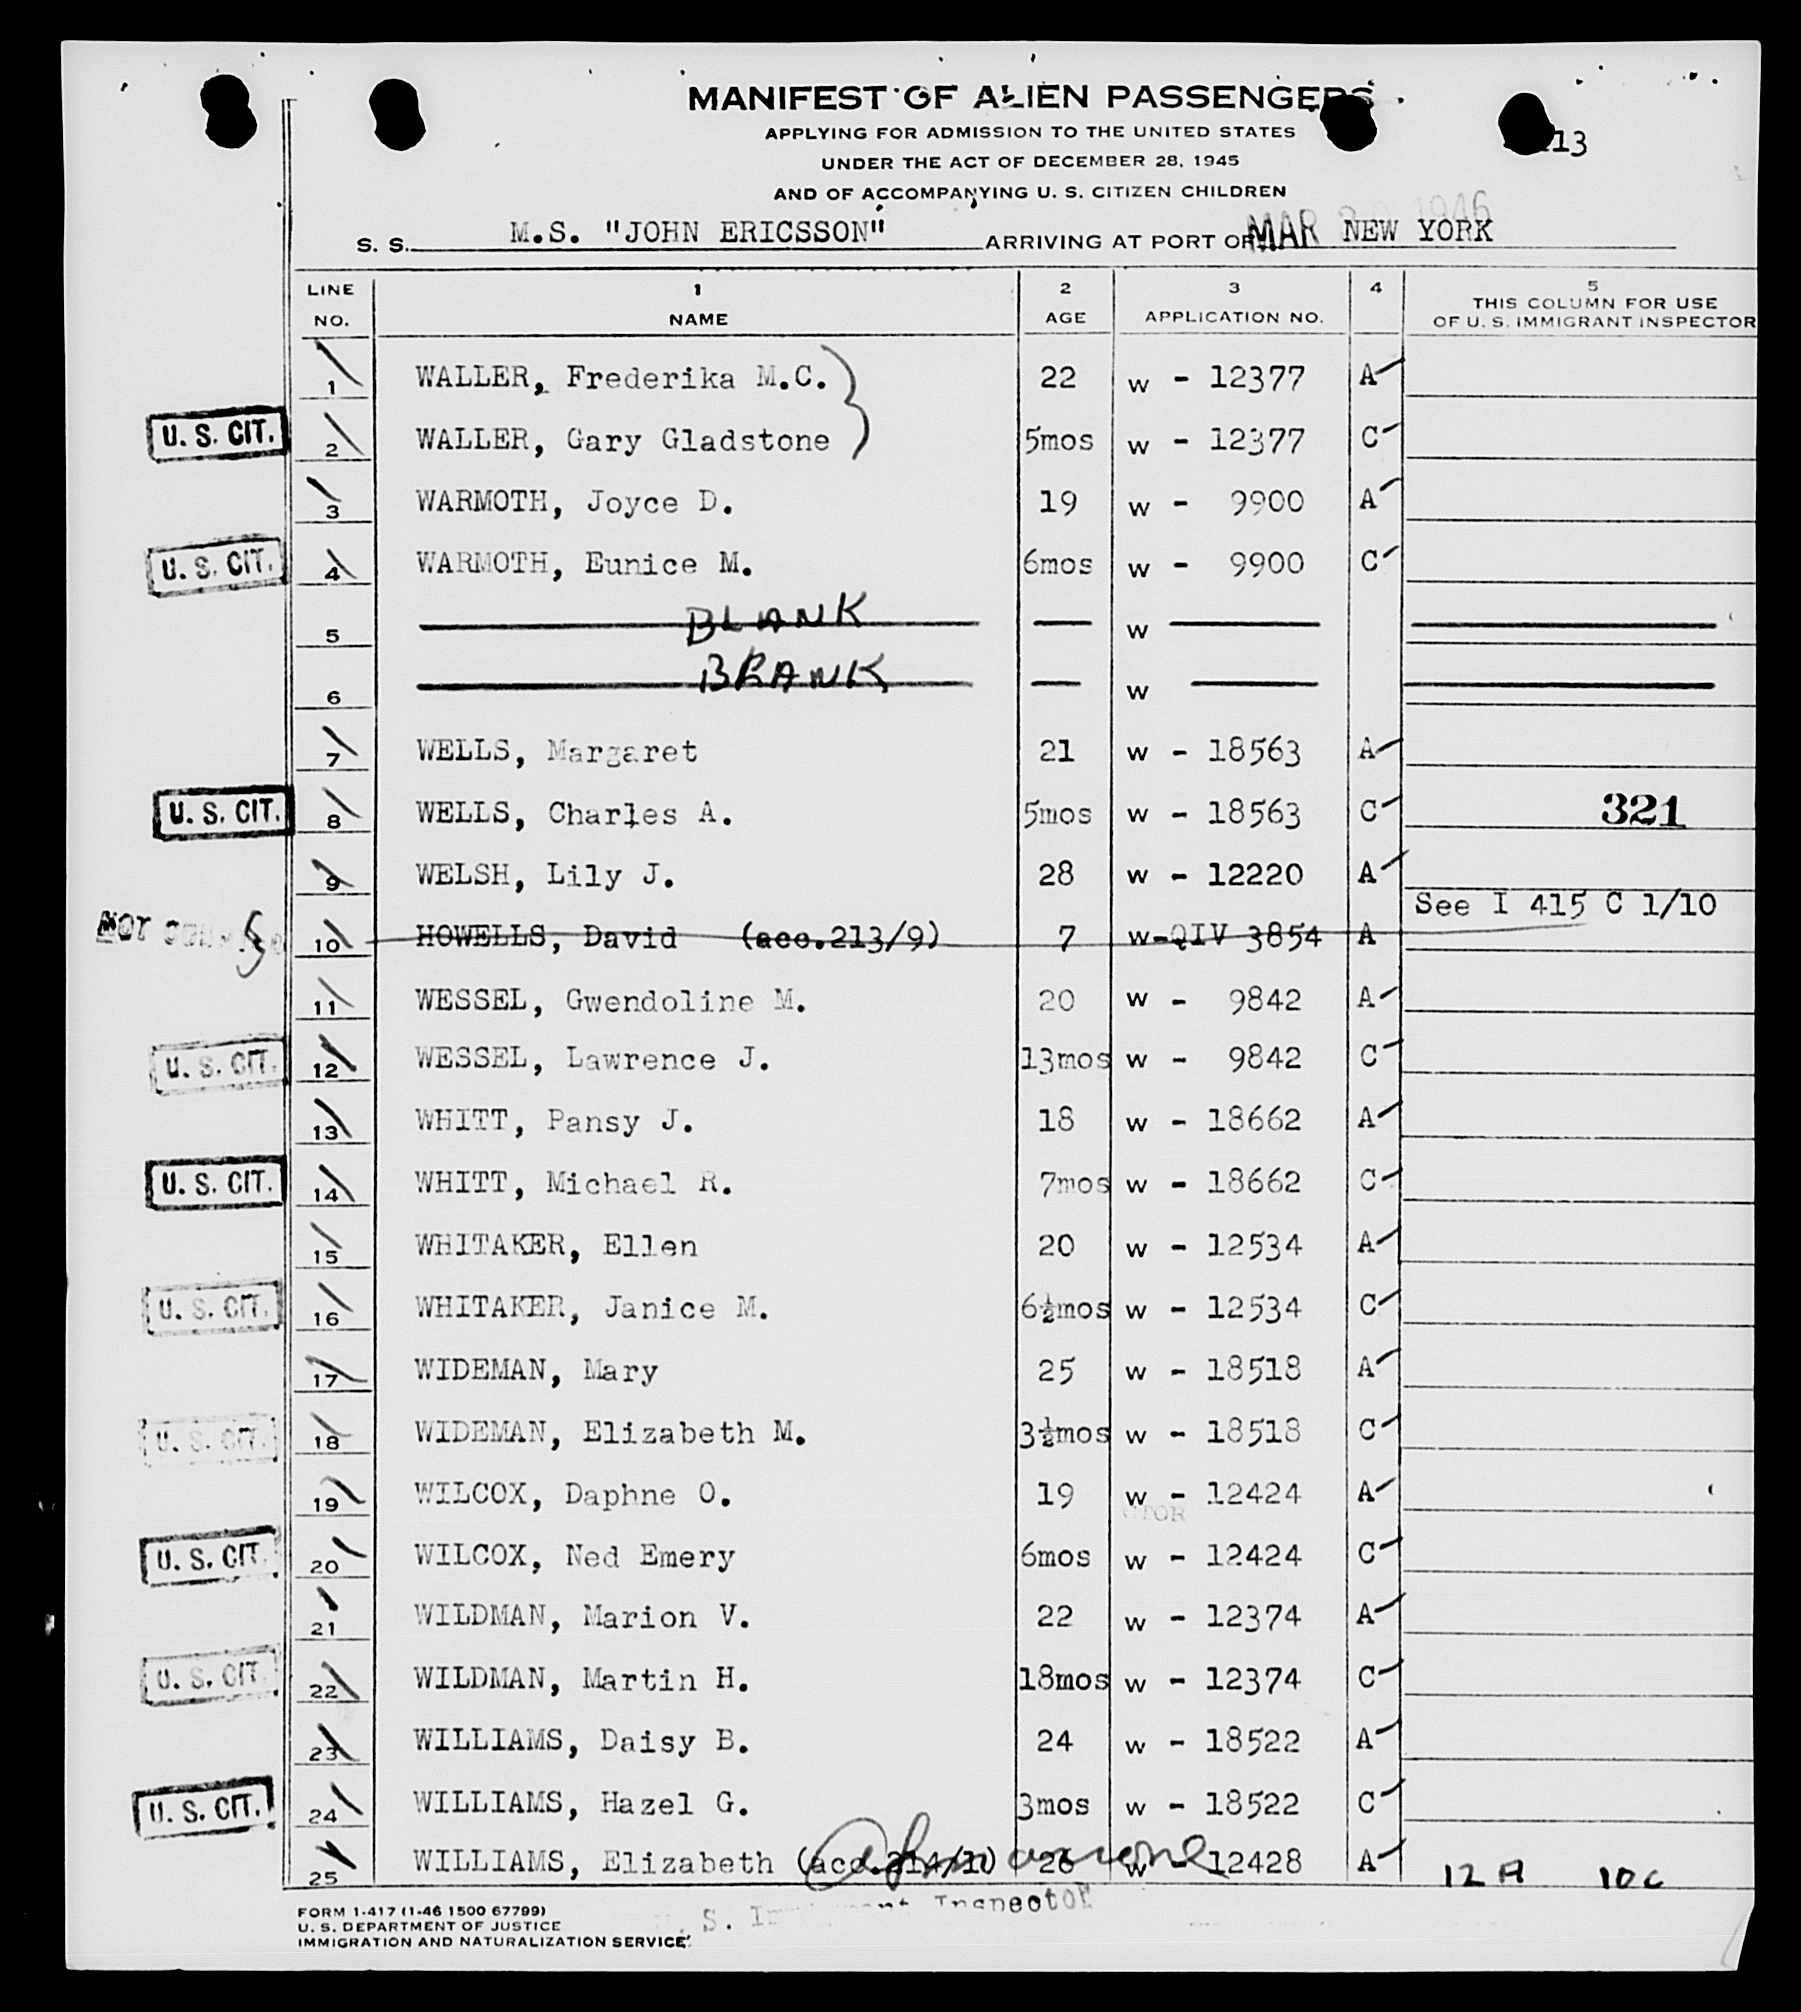 MANIFEST OF ALIEN PASSENGERS
APPLYING FOR ADMISSION TO THE UNITED STATES
UNDER THE ACT OF DECEMBER 28, 1945
AND OF ACCOMPANYING U. S. CITIZEN CHILDREN
13
S. S. M.S. "JOHN ERICSSON" ARRIVING AT PORT OF NEW YORK
MAR 1946
LINE NO. 1 NAME 2 AGE 3 APPLICATION NO. 4 5 THIS COLUMN FOR USE OF U. S. IMMIGRANT INSPECTOR
1 WALLER, Frederika M.C. 22 W - 12377 A
U. S. CIT. 2 WALLER, Gary Gladstone 5mos W - 12377 C
3 WARMOTH, Joyce D. 19 W - 9900 A
U. S. CIT. 4 WARMOTH, Eunice M. 6mos W - 9900 C
5 BLANK W
6 BLANK W
7 WELLS, Margaret 21 W - 18563 A
U. S. CIT. 8 WELLS, Charles A. 5mos W - 18563 C 321
9 WELSH, Lily J. 28 W - 12220 A
See I 415 C 1/10
NOT 10 HOWELLS, David (acc.213/9) 7 W-QIV 3854 A
11 WESSEL, Gwendoline M. 20 W - 9842 A
U. S. CIT. 12 WESSEL, Lawrence J. 13mos W - 9842 C
13 WHITT, Pansy J. 18 W - 18662 A
U. S. CIT. 14 WHITT, Michael R. 7mos W - 18662 C
15 WHITAKER, Ellen 20 W - 12534 A
U. S. CIT. 16 WHITAKER, Janice M. 6½mos W - 12534 C
17 WIDEMAN, Mary 25 W - 18518 A
U. S. CIT. 18 WIDEMAN, Elizabeth M. 3½mos W - 18518 C
19 WILCOX, Daphne O. 19 W - 12424 A
U. S. CIT. 20 WILCOX, Ned Emery 6mos W - 12424 C
21 WILDMAN, Marion V. 22 W - 12374 A
U. S. CIT. 22 WILDMAN, Martin H. 18mos W - 12374 C
23 WILLIAMS, Daisy B. 24 W - 18522 A
U. S. CIT. 24 WILLIAMS, Hazel G. 3mos W - 18522 C
25 WILLIAMS, Elizabeth (acc.214/1) 26 W - 12428 A 12 A 10 C
U. S. Immigrant Inspector
FORM I-417 (1-46 1500 67799)
U. S. DEPARTMENT OF JUSTICE
IMMIGRATION AND NATURALIZATION SERVICE